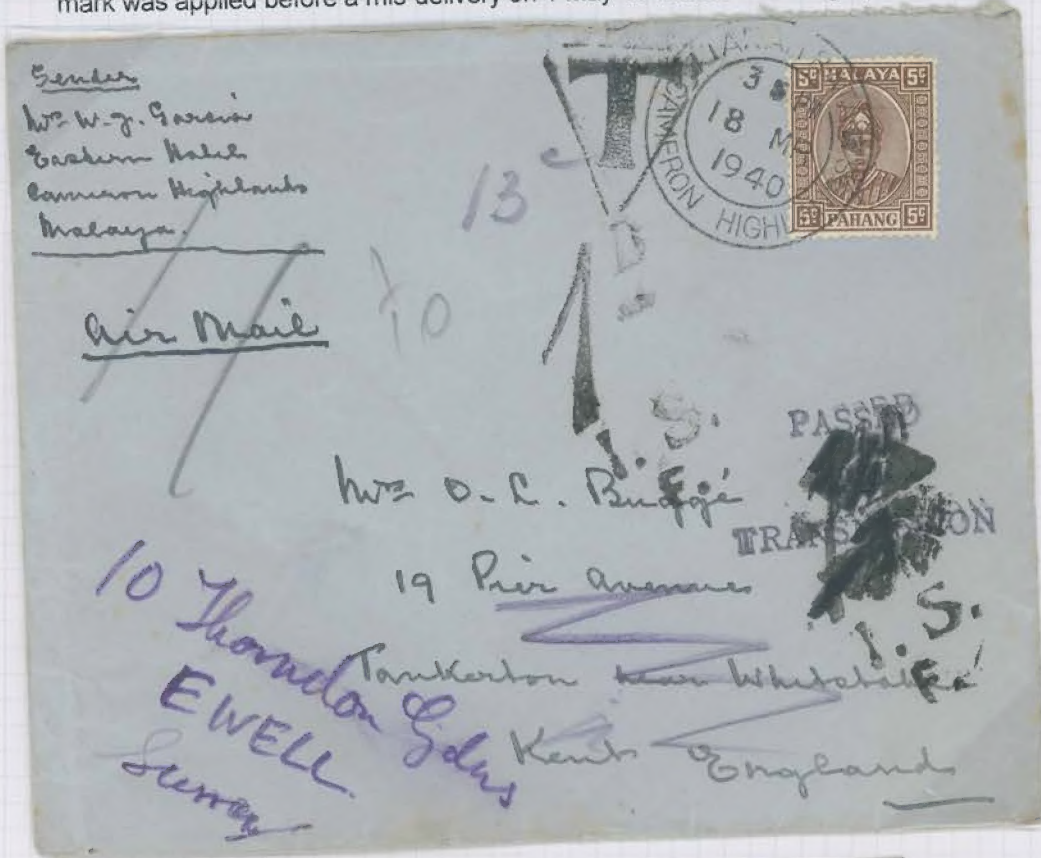 mark was applied before a mis-delivery on
Sender
Mrs W. J. Garcia
Eastern Hotel
Cameron Highlands
Malaya.
Air Mail
13 c
T
10
TANAH
CAMERON HIGHL
3
18 M
1940
5c MALAYA 5c
5c PAHANG 5c
D
1
I. S.
E.
PASSED
TRANS ON
I. S.
E.
Mrs D. L. Buggé
19 Pier Avenue
Tankerton near Whitstable
Kent England
10 Thorndon Gdns
EWELL
Surrey